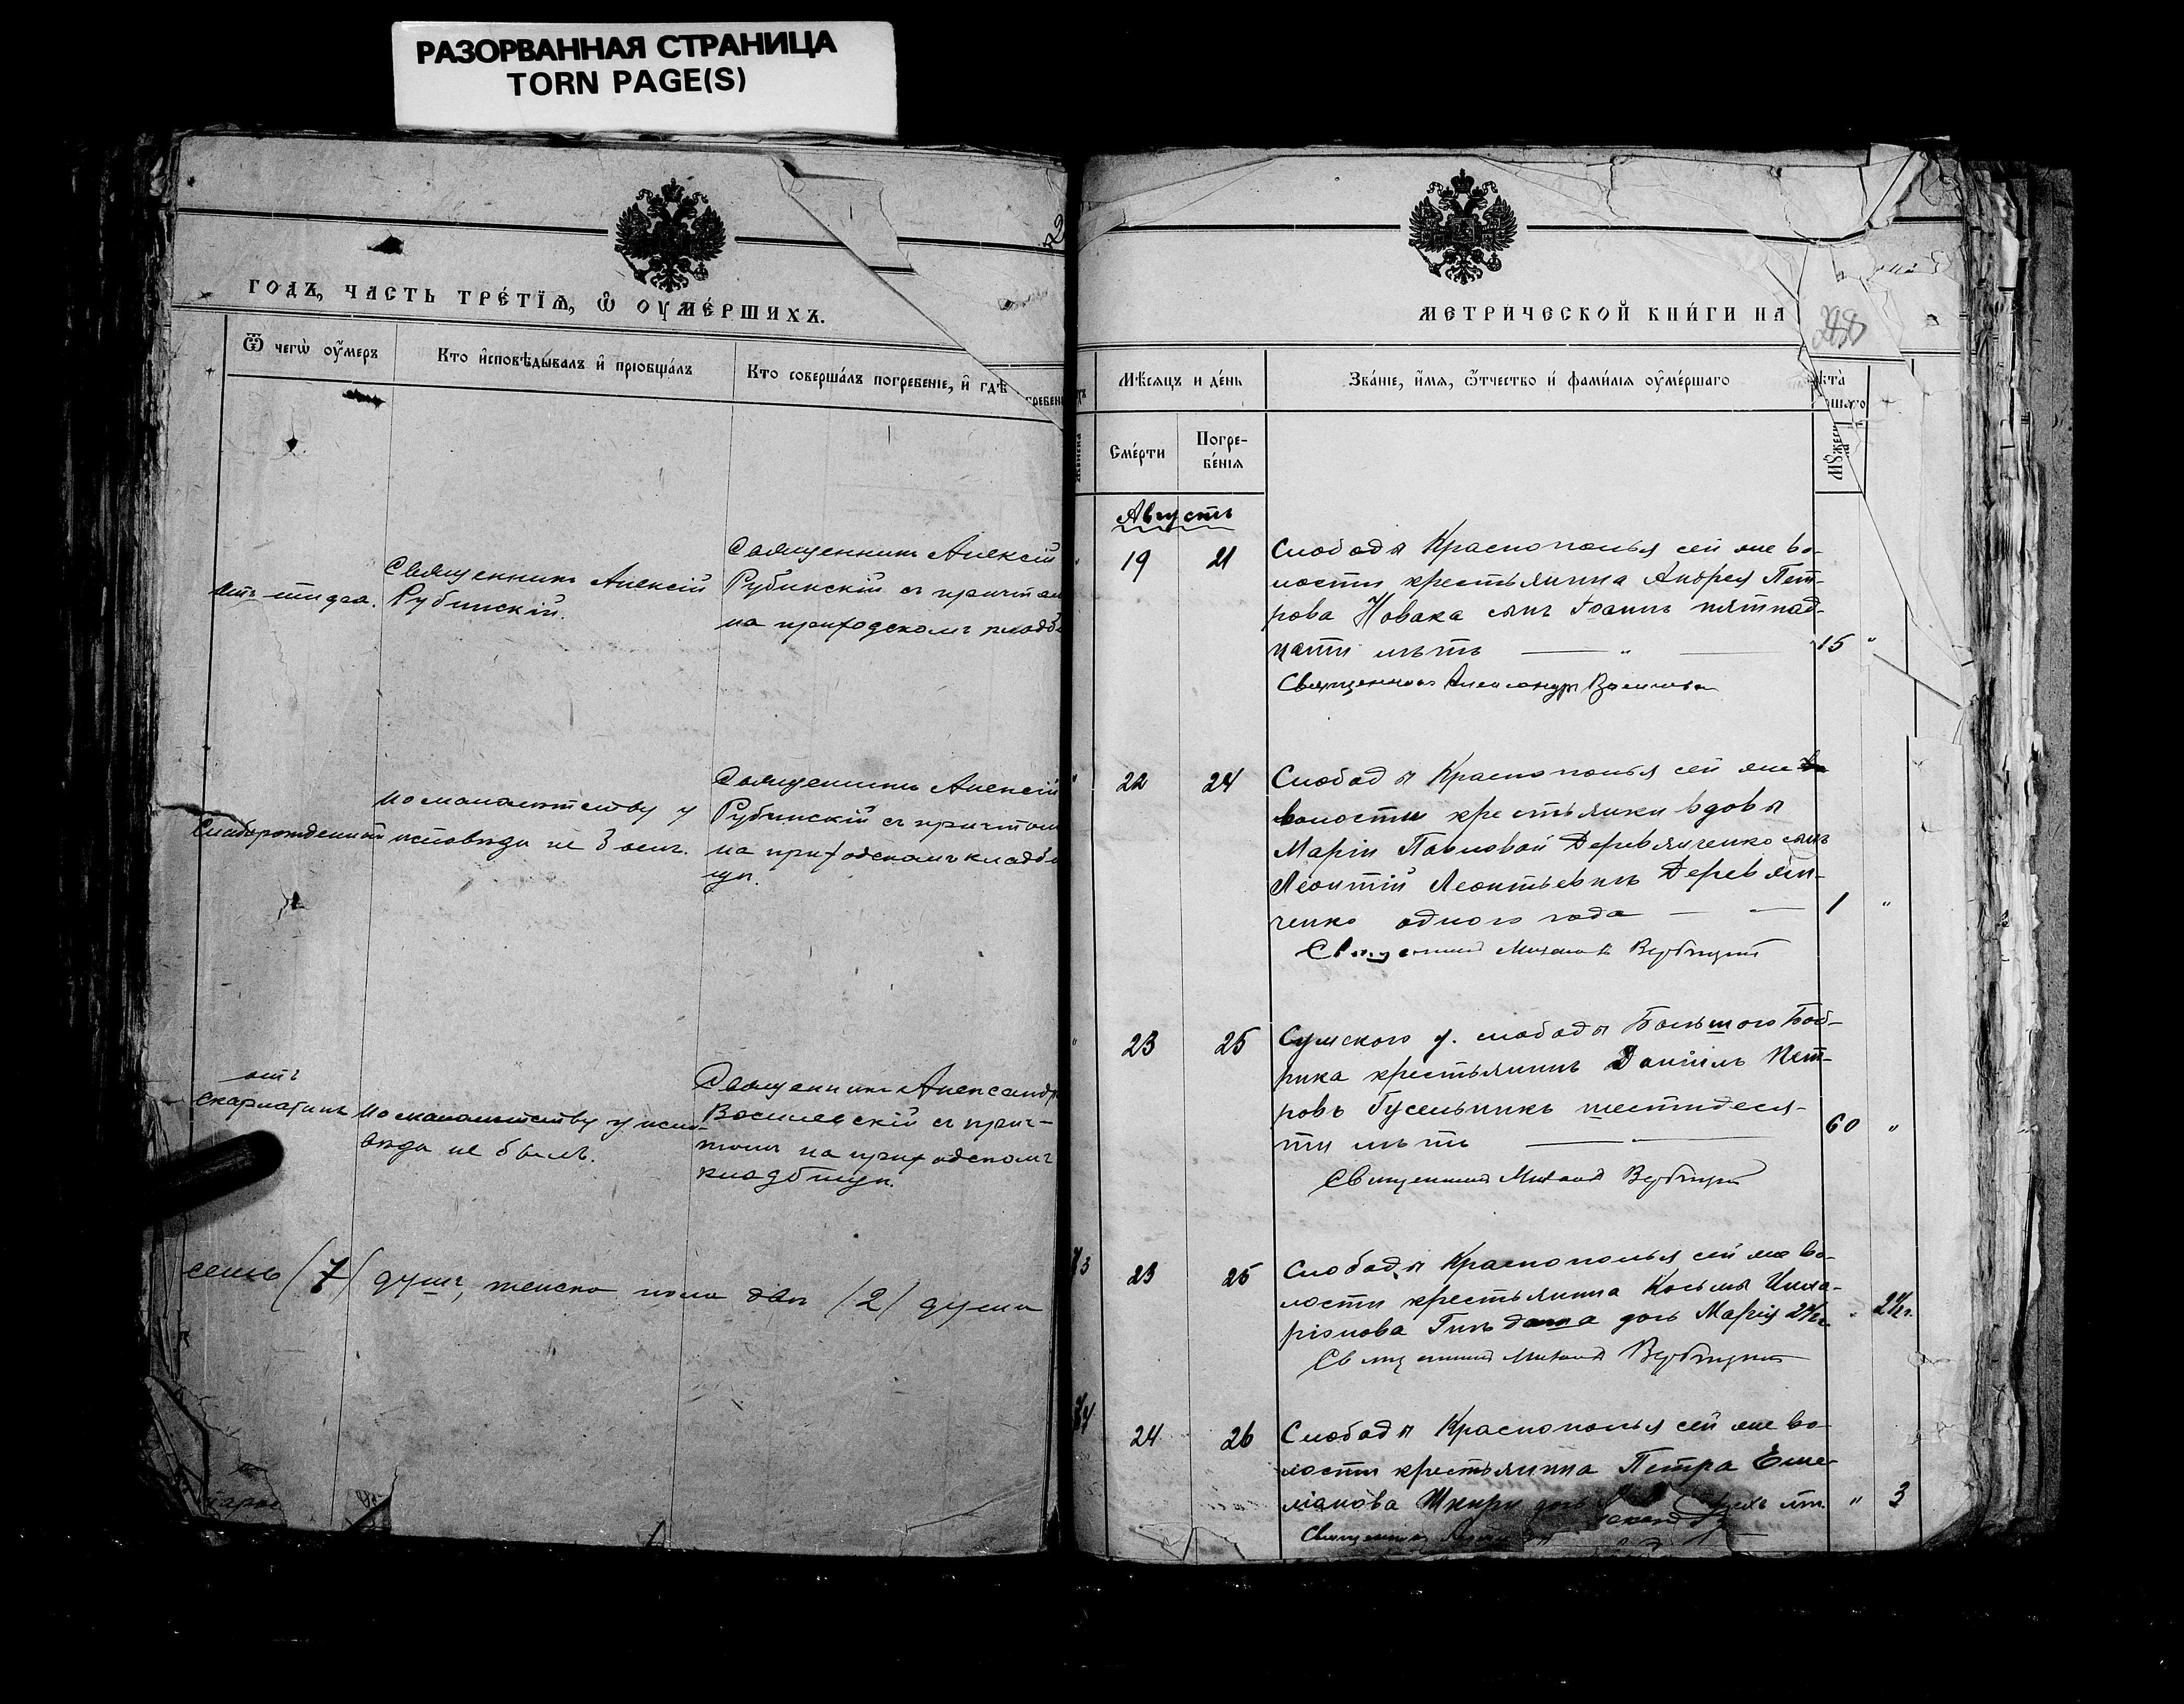 РАЗОРВАННАЯ СТРАНИЦА
TORN PAGE(S)
ГОДЪ, ЧАСТЬ ТРЕ́ТЇѦ, Ѽ ОУМЕ́РШИХЪ.
Ѿ чегѡ̀ оу҆́меръ
Кто и҆сповѣ́дывалъ и҆ прїѡбща́лъ
Кто соверша́лъ погребенїе, и҆ гдѣ̀
Священникъ Алексій
Рубинскій.
Священникъ Алексій
Рубинскій съ причтом
на приходскомъ кладб
Слаборожденный
по малолѣтству у
исповѣди не былъ.
Священникъ Алексій
Рубинскій съ причтом
на приходскомъ кладби
щѣ.
отъ
скарлатины
по малолѣтству у испо-
вѣди не былъ.
Священникъ Александръ
Василевскій съ прич-
томъ на приходскомъ
кладбищѣ.
семь (7) душъ, женска пола двѣ (2) души
МЕТРИЧЕСКОЙ КНИ́ГИ НА
288
Мѣ́сѧцъ и де́нь
Зва́нїе, и҆́мѧ, ѻ҆́тчество и҆ фами́лїѧ оу҆ме́ршаго
Сме́рти
Погре-
бе́нїѧ
Августъ
19 21 Слободы Краснополья сей же во-
лости крестьянина Андрея Пет-
рова Новака сынъ Іоаннъ пятнад-
цати лѣтъ — " — 15 "
Священникъ Александръ Василевск
22 24 Слободы Краснополья сей же
волости крестьянки вдовы
Маріи Павловой Деревянченко сынъ
Леонтій Леонтьевичъ Деревян-
ченко одного года — " — 1 "
Священникъ Михаилъ Вербицкій
23 25 Сумского у. слободы Большого Боб-
рика крестьянинъ Даніилъ Пет-
ровъ Гусельникъ шестидеся-
ти лѣтъ — " — 60 "
Священникъ Михаилъ Вербицкій
73 23 25 Слободы Краснополья сей же во-
лости крестьянина Косьмы Илла-
ріонова дочь Марія
Священникъ Михаилъ Вербицкій
24 26 Слободы Краснополья сей же во-
лости крестьянина Петра Еме-
ліанова Шкиры дочь трехъ лѣт. " 3
Священникъ